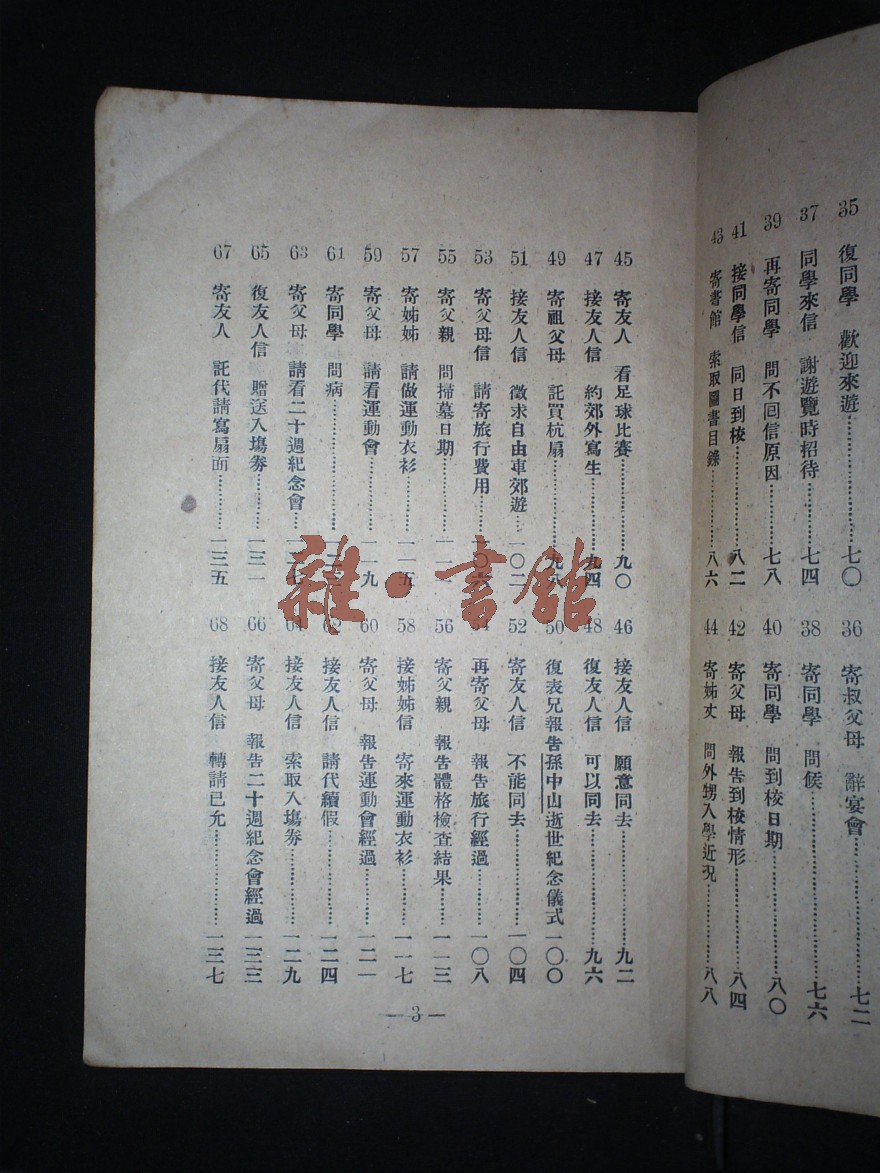 35 復同學 歡迎來遊…………七〇 36 寄叔父母 辭宴會…………七二
37 同學來信 謝遊覽時招待………七四 38 寄同學 問候…………七六
39 再寄同學 問不回信原因………七八 40 寄同學 問到校日期………八〇
41 接同學信 同日到校…………八二 42 寄父母 報告到校情形………八四
43 寄書館 索取圖書目錄………八六 44 寄姊丈 問外甥入學近況………八八
45 寄友人 看足球比賽…………九〇 46 接友人信 願意同去…………九二
47 接友人信 約郊外寫生………九四 48 復友人信 可以同去…………九六
49 寄祖父母 託買杭扇…………九八 50 復表兄報告孫中山逝世紀念儀式 一〇〇
51 接友人信 徵求自由車郊遊…一〇二 52 寄友人信 不能同去………一〇四
53 寄父母信 請寄旅行費用……一〇六 54 再寄父母 報告旅行經過……一〇八
55 寄父親 問掃墓日期………一一一 56 寄父親 報告體格檢查結果…一一三
57 寄姊姊 請做運動衣衫……一一五 58 接姊姊信 寄來運動衣衫……一一七
59 寄父母 請看運動會………一一九 60 寄父母 報告運動會經過……一二一
61 寄同學 問病………… 62 接友人信 請代續假………一二四
63 寄父母 請看二十週紀念會… 64 接友人信 索取入塲券………一二九
65 復友人信 贈送入塲券………一三一 66 寄父母 報告二十週紀念會經過 一三三
67 寄友人 託代請寫扇面………一三五 68 接友人信 轉請已允…………一三七
—3—
雜·書館